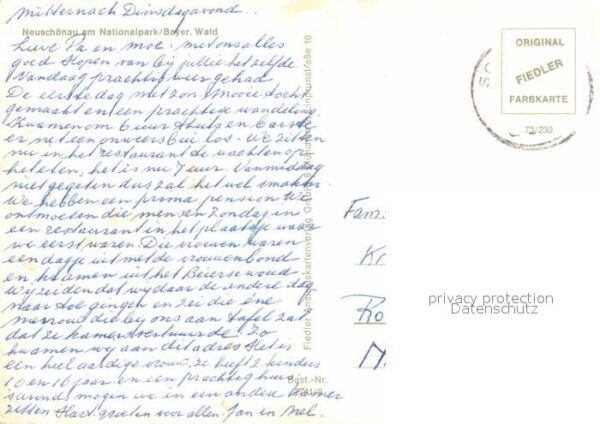 Mitternach Dinsdagavond..
Neuschönau am Nationalpark/Bayer. Wald
Lieve Pa en moe. met ons alles
goed Hopen van bij jullie hetzelfde
Vandaag prachtig weer gehad
De eerste dag met zon mooie tocht
gemaakt en een prachtige wandeling.
Kwamen om 6 uur thuis en barste
er net een onweersbui los. We zitten
nu in het restaurant te wachten op
het eten, het is nu 7 uur. Vanmiddag
niet gegeten dus zal het wel smaken
We hebben een prima pension. We
ontmoeten die mensen Zondag in
een restaurant in het plaatsje waar
we eerst waren. Die vrouwen waren
een dagje uit met de vrouwenbond
en kwamen uit het Beierse woud
wij zeiden dat wij daar de andere dag
naar toe gingen en zei die ene
mevrouw die bij ons aan tafel zat
dat ze kamers verhuurde. Zo
kwamen wij aan dit adres Het is
een heel aardige vrouw, ze heeft 2 kinders
10 en 16 jaar en een prachtig huis
's avonds mogen we in een andere kamer
zitten Hart. groeten voor allen. Jan en
Fiedler Ansichtskartenverlag
Best.-Nr.
ORIGINAL
FIEDLER
FARBKARTE
73/230
Fam.
privacy protection
Datenschutz